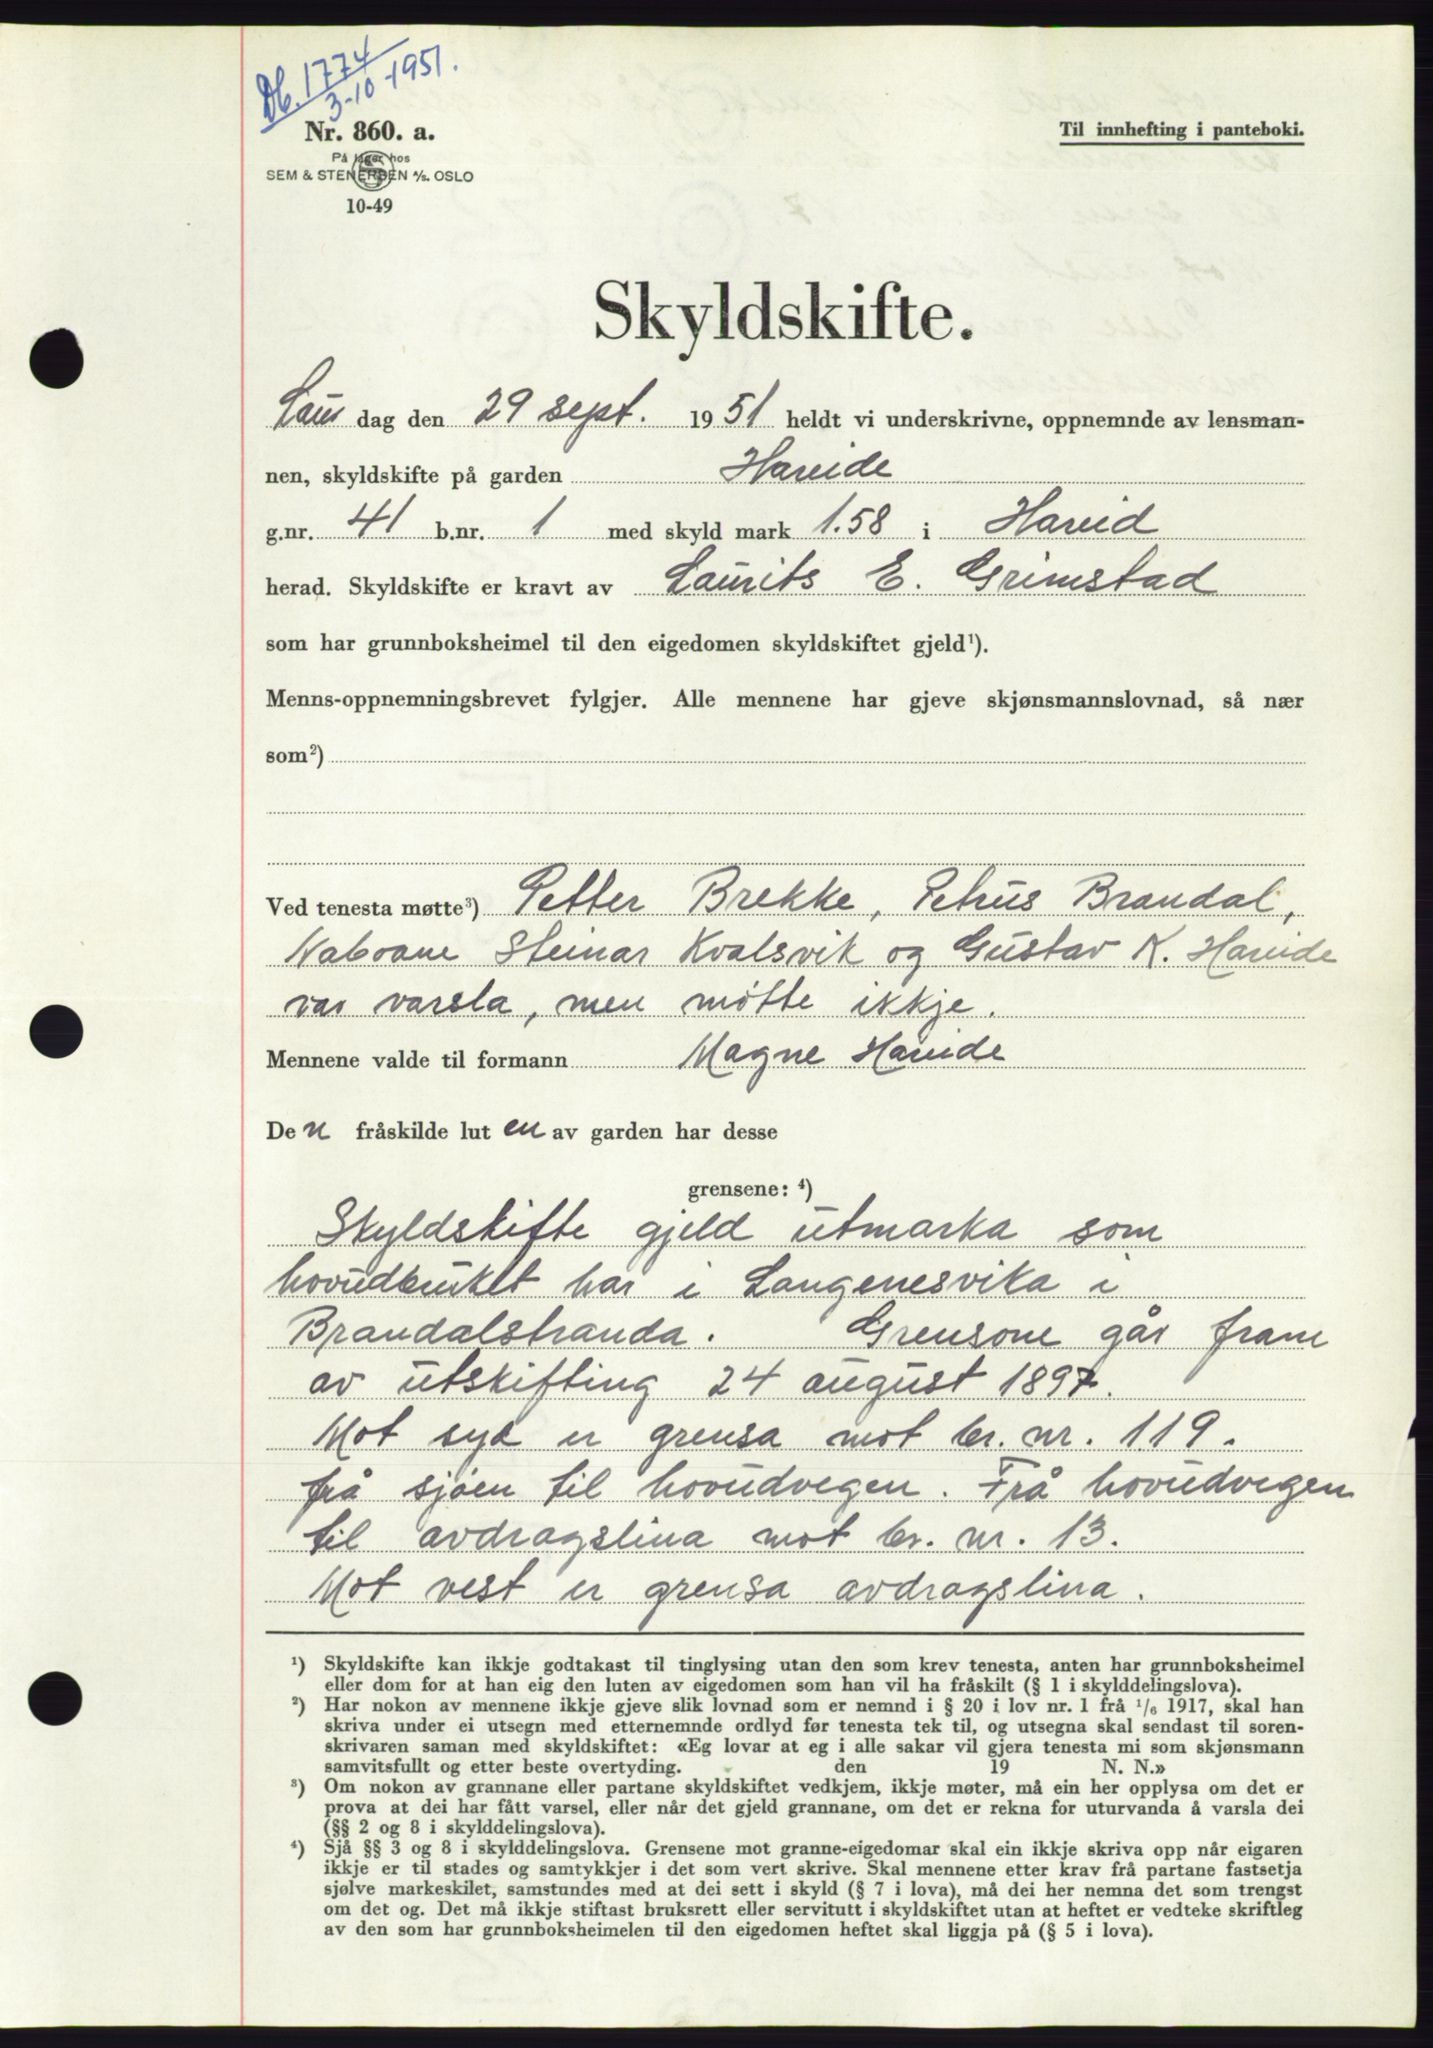 Db. 1774
3-10-1951.
Nr. 860. a.
På lager hos
SEM & STENERSEN A/S. OSLO
10-49
Til innhefting i panteboki.
Skyldskifte.
Laur dag den 29 sept. 1951 heldt vi underskrivne, oppnemnde av lensman-
nen, skyldskifte på garden Hareide
g.nr. 41 b.nr. 1 med skyld mark 1.58 i Hareid
herad. Skyldskifte er kravt av Laurits E. Grimstad
som har grunnboksheimel til den eigedomen skyldskiftet gjeld¹).
Menns-oppnemningsbrevet fylgjer. Alle mennene har gjeve skjønsmannslovnad, så nær
som²)
Ved tenesta møtte³) Petter Brekke, Petrus Brandal,
Naboane Steinar Kvalsvik og Gustav K. Hareide
var varsla, men møtte ikkje.
Mennene valde til formann Magne Hareide
De n fråskilde lut en av garden har desse
grensene: ⁴)
Skyldskifte gjeld utmarka som
hovudbruket har i Langenesvika i
Brandalstranda. Grensone går fram
av utskifting 24 august 1897.
Mot syd er grensa mot br. nr. 119.
frå sjøen til hovudvegen. Frå hovudvegen
til avdragslina mot br. nr. 13.
Mot vest er grensa avdragslina.
¹) Skyldskifte kan ikkje godtakast til tinglysing utan den som krev tenesta, anten har grunnboksheimel
eller dom for at han eig den luten av eigedomen som han vil ha fråskilt (§ 1 i skylddelingslova).
²) Har nokon av mennene ikkje gjeve slik lovnad som er nemnd i § 20 i lov nr. 1 frå ¹/₆ 1917, skal han
skriva under ei utsegn med etternemnde ordlyd før tenesta tek til, og utsegna skal sendast til soren-
skrivaren saman med skyldskiftet: «Eg lovar at eg i alle sakar vil gjera tenesta mi som skjønsmann
samvitsfullt og etter beste overtyding. den 19 N. N.»
³) Om nokon av grannane eller partane skyldskiftet vedkjem, ikkje møter, må ein her opplysa om det er
prova at dei har fått varsel, eller når det gjeld grannane, om det er rekna for uturvanda å varsla dei
(§§ 2 og 8 i skylddelingslova).
⁴) Sjå §§ 3 og 8 i skylddelingslova. Grensene mot granne-eigedomar skal ein ikkje skriva opp når eigaren
ikkje er til stades og samtykkjer i det som vert skrive. Skal mennene etter krav frå partane fastsetja
sjølve markeskilet, samstundes med at dei sett i skyld (§ 7 i lova), må dei her nemna det som trengst
om det og. Det må ikkje stiftast bruksrett eller servitutt i skyldskiftet utan at heftet er vedteke skriftleg
av den som har grunnboksheimelen til den eigedomen heftet skal liggja på (§ 5 i lova).